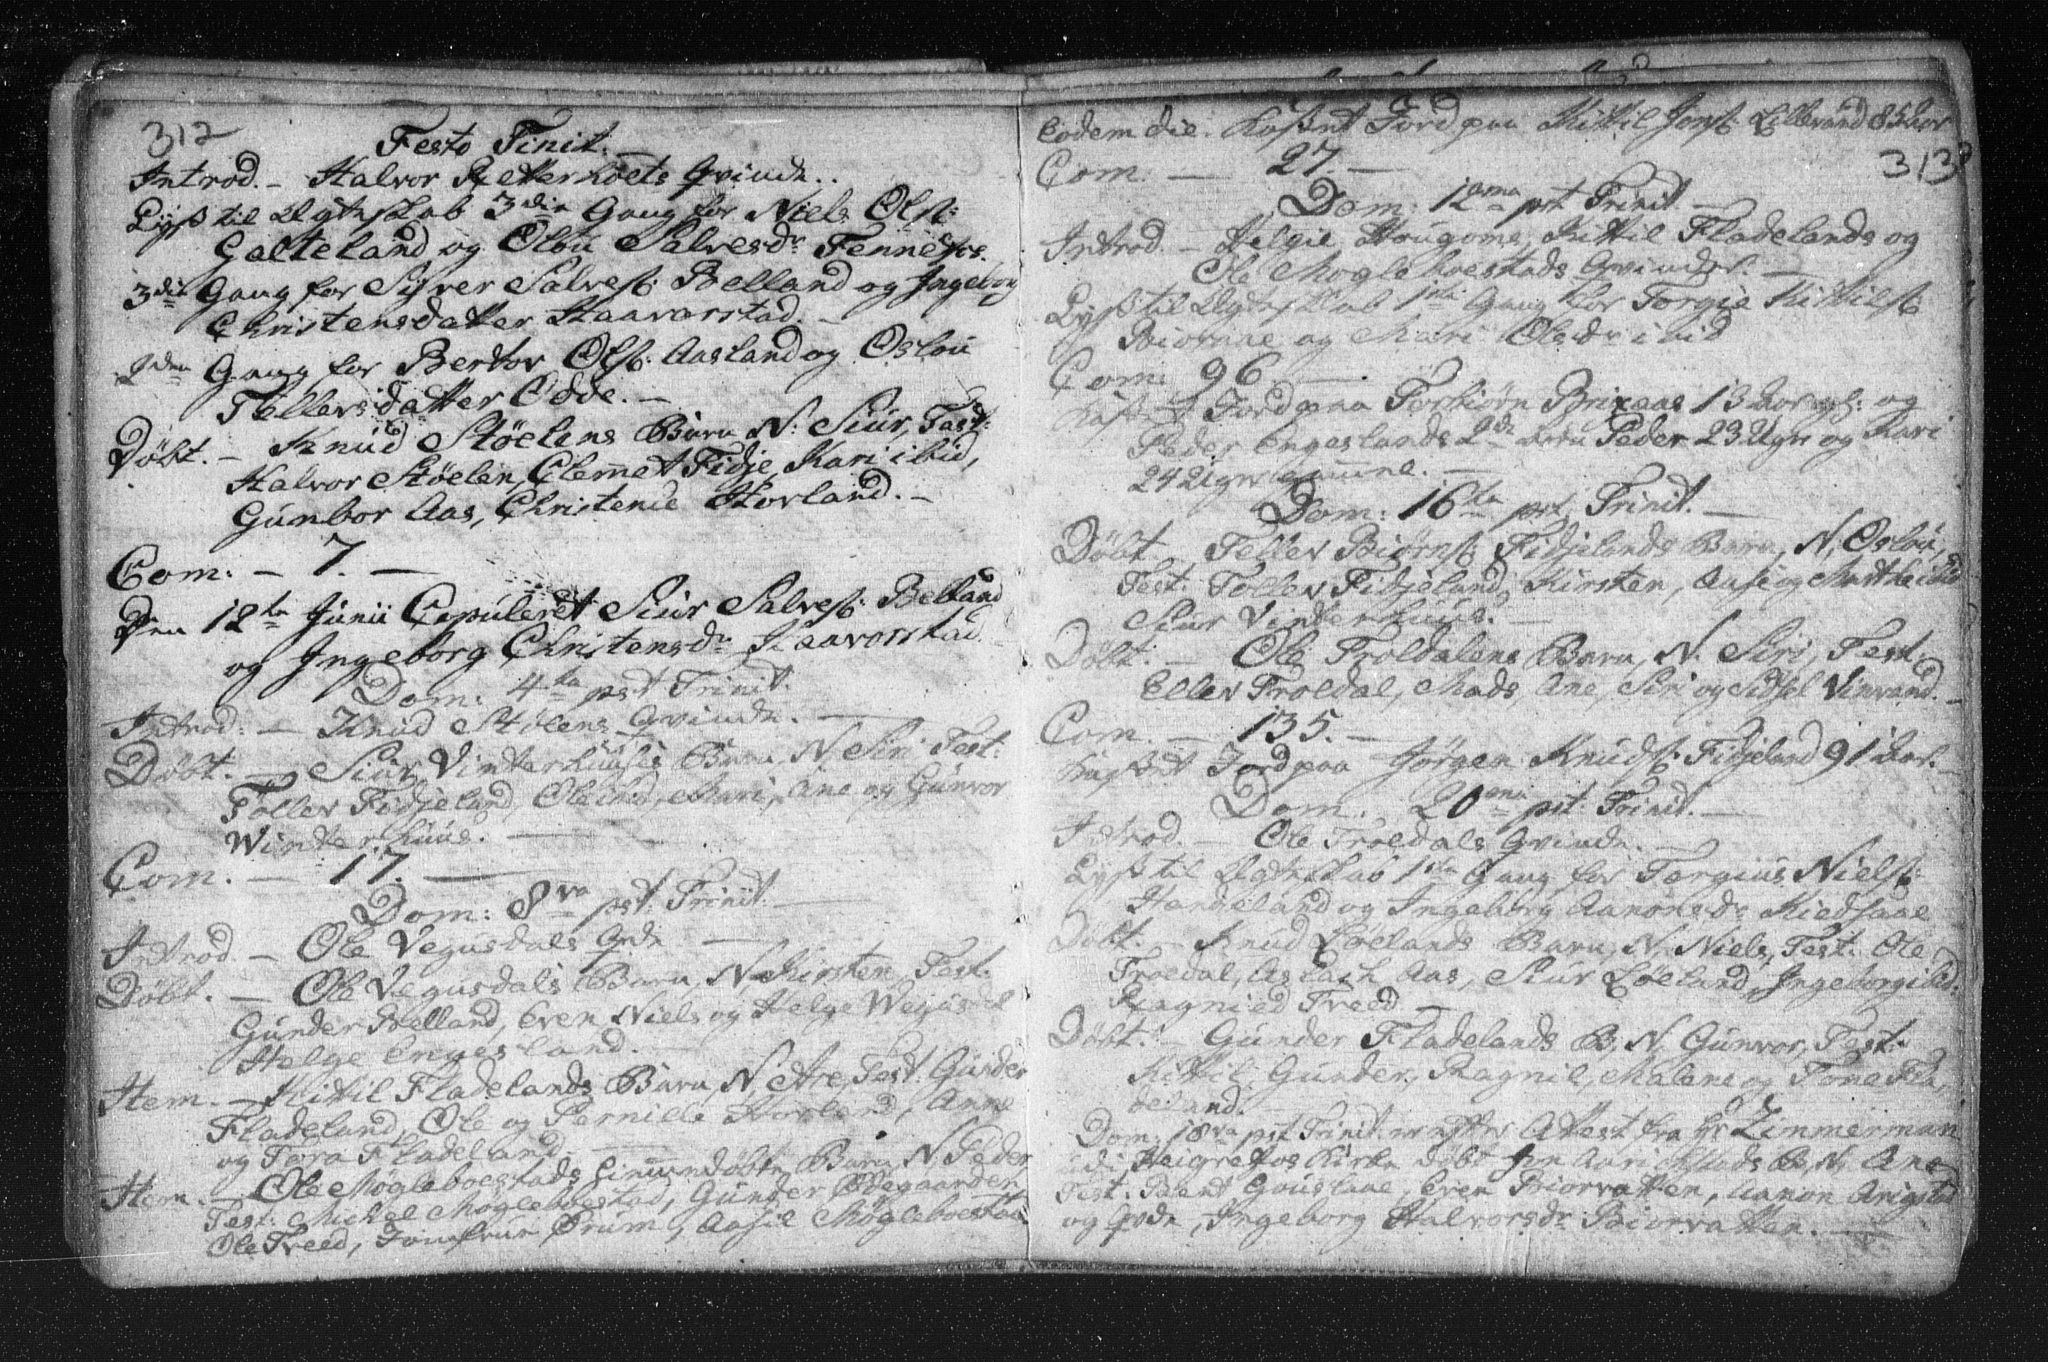 312
Festo Tinit. —
Introd. — Halvor Retterholts Qvinde.
Lyst til Ægteskab 3die Gang for Niels Ols:
Galteland og Olou Salvesdr Fennefos.
3die Gang for Syver Salves: Belland og Ingeborg
Christensdatter Haavorstad. —
2den Gang for Bertor Ols: Aasland og Oslou
Tellersdatter Odde. —
Döbt. — Knud Stöelens Barn N: Siur, Test:
Halvor Stöelen, Clemet Fidje, Kari ibid,
Gunbor Aas, Christence Hovland. —
Com: — 7. —
Den 12te Junii Copuleret Siur Salves: Belland
og Ingeborg Christensdr Haavorstad.
Dom: 4ta pst Trinit.
Introd: — Knud Stölens Qvinde. —
Döbt. — Siur Vinterhuuses Barn, N. Siri, Test:
Toller Fidjeland, Ole ibid, Mari, Ane og Gunvor
Winterhuus. —
Com. — 17. —
Dom: 8va pst. Trinit. —
Introd. — Ole Vegusdals Qvde —
Döbt. — Ole Vegusdals Barn, N, Kirsten, Test.
Gunder Belland, Even, Niels og Helge Wegusdal
Helge Engesland. —
Item. — Kittil Fladelands Barn, N, Are, Test: Gunder
Fladeland, Ole og Pernille Hovland, Anne
og Tora Fladeland. —
Item. — Ole Mögleboestads hiemmedöbte Barn N. Peder
Test: Mickel Mögleboestad, Gunder Ödegaarden
Ole Treed, Jomfrue Örum, Aasil Mögleboestad
Eodem die. Kastet Jord paa Kittil Jons: Lillevand 85 Aar
313
Com. — 27. —
Dom: 12ma pst Trinit. —
Introd. — Helgie Haugoms, Kittil Fladelands og
Ole Mögleboestads Qvinder. —
Lyst til Ægteskab 1ste Gang for Torgie Kittils:
Biornae og Mari Olsdr ibid
Com: 96 —
Kastet Jord paa Torbiörn Brixaas 13 Aar og
Peder Engeslands 2de Börn Peder 23 Uger og Kari
24 Uger gamme. —
Dom: 16ta pst, Trinit. —
Döbt — Teller Biörns: Fidjelands Barn, N, Oslou,
Test: Toller Fidjeland, Kirsten, Aase og Marthe ibid
Siur Vinterhuus. —
Döbt: — Ole Troldalens Barn, N. Siri, Test.
Eller Troldal, Mads, Ane, Siri og Sidsel Vinvand. —
Com. — 135. —
Kastet Jord paa Jörgen Knuds: Fidjeland 91 Aar. —
Dom. 20ma pst. Trinit. —
Introd. — Ole Troldals Qvinde. —
Lyst til Ægteskab 1ste Gang for Torgius Niels:
Hanneland og Ingeborg Aanonsdr Kiedsaae
Döbt. — Knud Löelands Barn, N. Niels, Test: Ole
Troldal, Aslach Aas, Siur Löeland, Ingeborg ibid:
Ragnied Treed —
Döbt. — Gunder Fladelands B, N, Gunvor, Test:
Kittil, Gunder, Ragnil, Malene og Tone Fla,
deland.
Dom: 18va pst Trinit: er efter Attest fra Hr Zimmerman
udi Heigrefos Kirke döbt Jon Aarickstads B. N. Ane
Test: Bent Gouslaae, Even Biorvatten, Aanon Arigstad
og Qvde, Ingeborg Halvorsdr Biorvatten. —